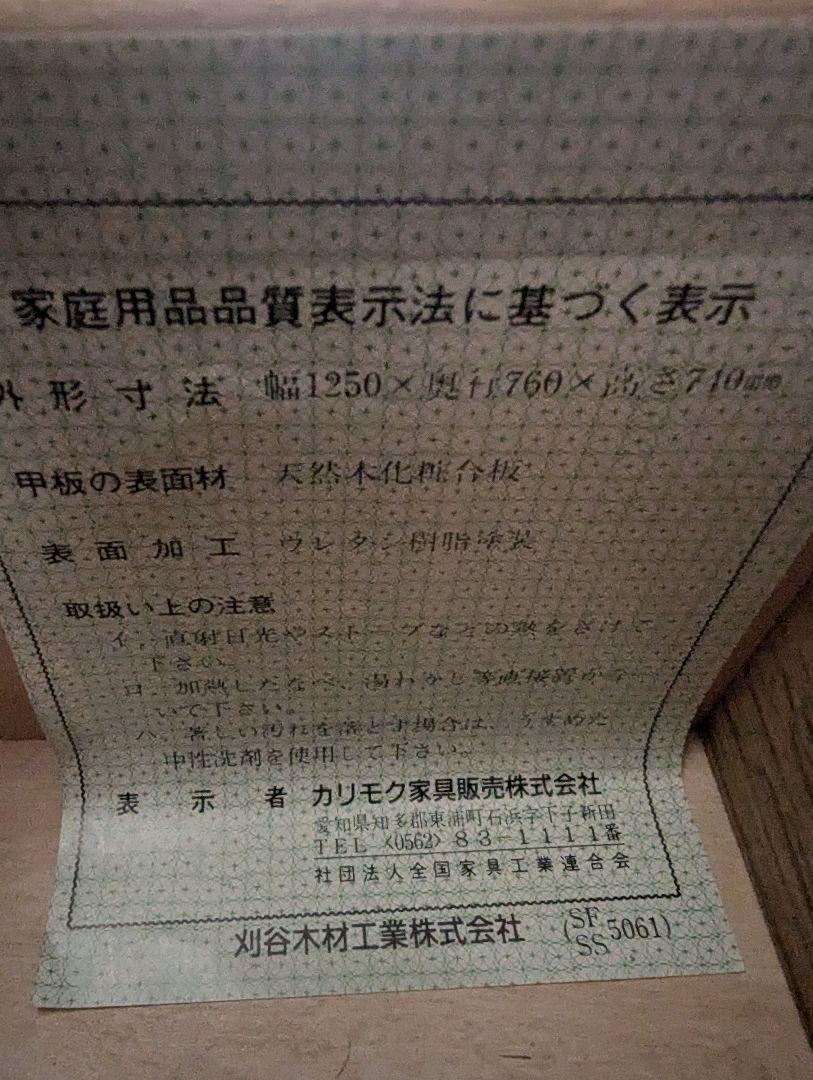 家庭用品品質表示法に基づく表示
外形寸法 幅1250×奥行760×高さ710
甲板の表面材 天然木化粧合板
表面加工 ウレタン樹脂塗装
取扱い上の注意
イ. 直射日光やストーブなどの熱をさけて
下さい。
ロ. 加熱したなべ、湯わかし等直接置かな
いで下さい。
ハ. 著しい汚れを落とす場合は、うすめた
中性洗剤を使用して下さい。
表示者 カリモク家具販売株式会社
愛知県知多郡東浦町石浜字下子新田
TEL 〈0562〉 83-1111番
社団法人全国家具工業連合会
刈谷木材工業株式会社 (SF SS 5061)